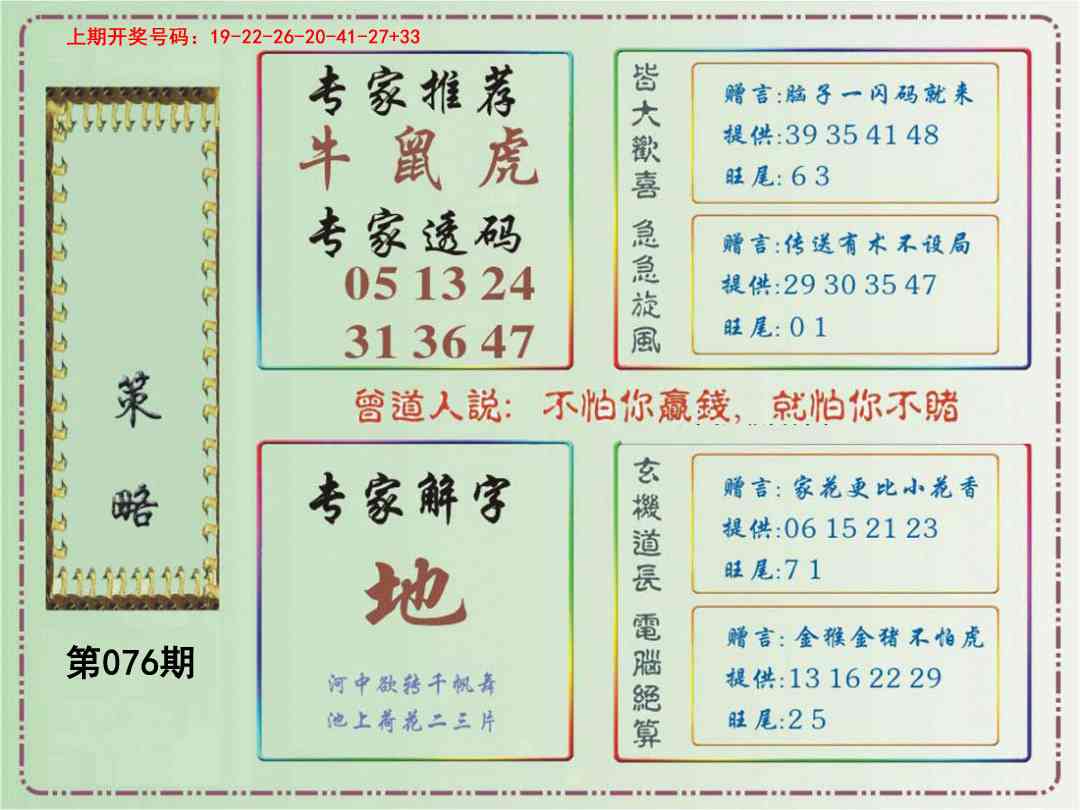 上期开奖号码：19-22-26-20-41-27+33
专家推荐
牛 鼠 虎
专家透码
05 13 24
31 36 47
皆大歡喜
赠言:脑子一闪码就来
提供:39 35 41 48
旺尾: 6 3
急急旋風
赠言:传送有术不设局
提供:29 30 35 47
旺尾: 0 1
策略
第076期
曾道人説: 不怕你赢錢, 就怕你不賭
专家解字
地
河中欲转千帆舞
池上荷花二三片
玄機道長
赠言: 家花更比小花香
提供:06 15 21 23
旺尾:7 1
電腦絕算
赠言: 金猴金猪不怕虎
提供:13 16 22 29
旺尾:2 5